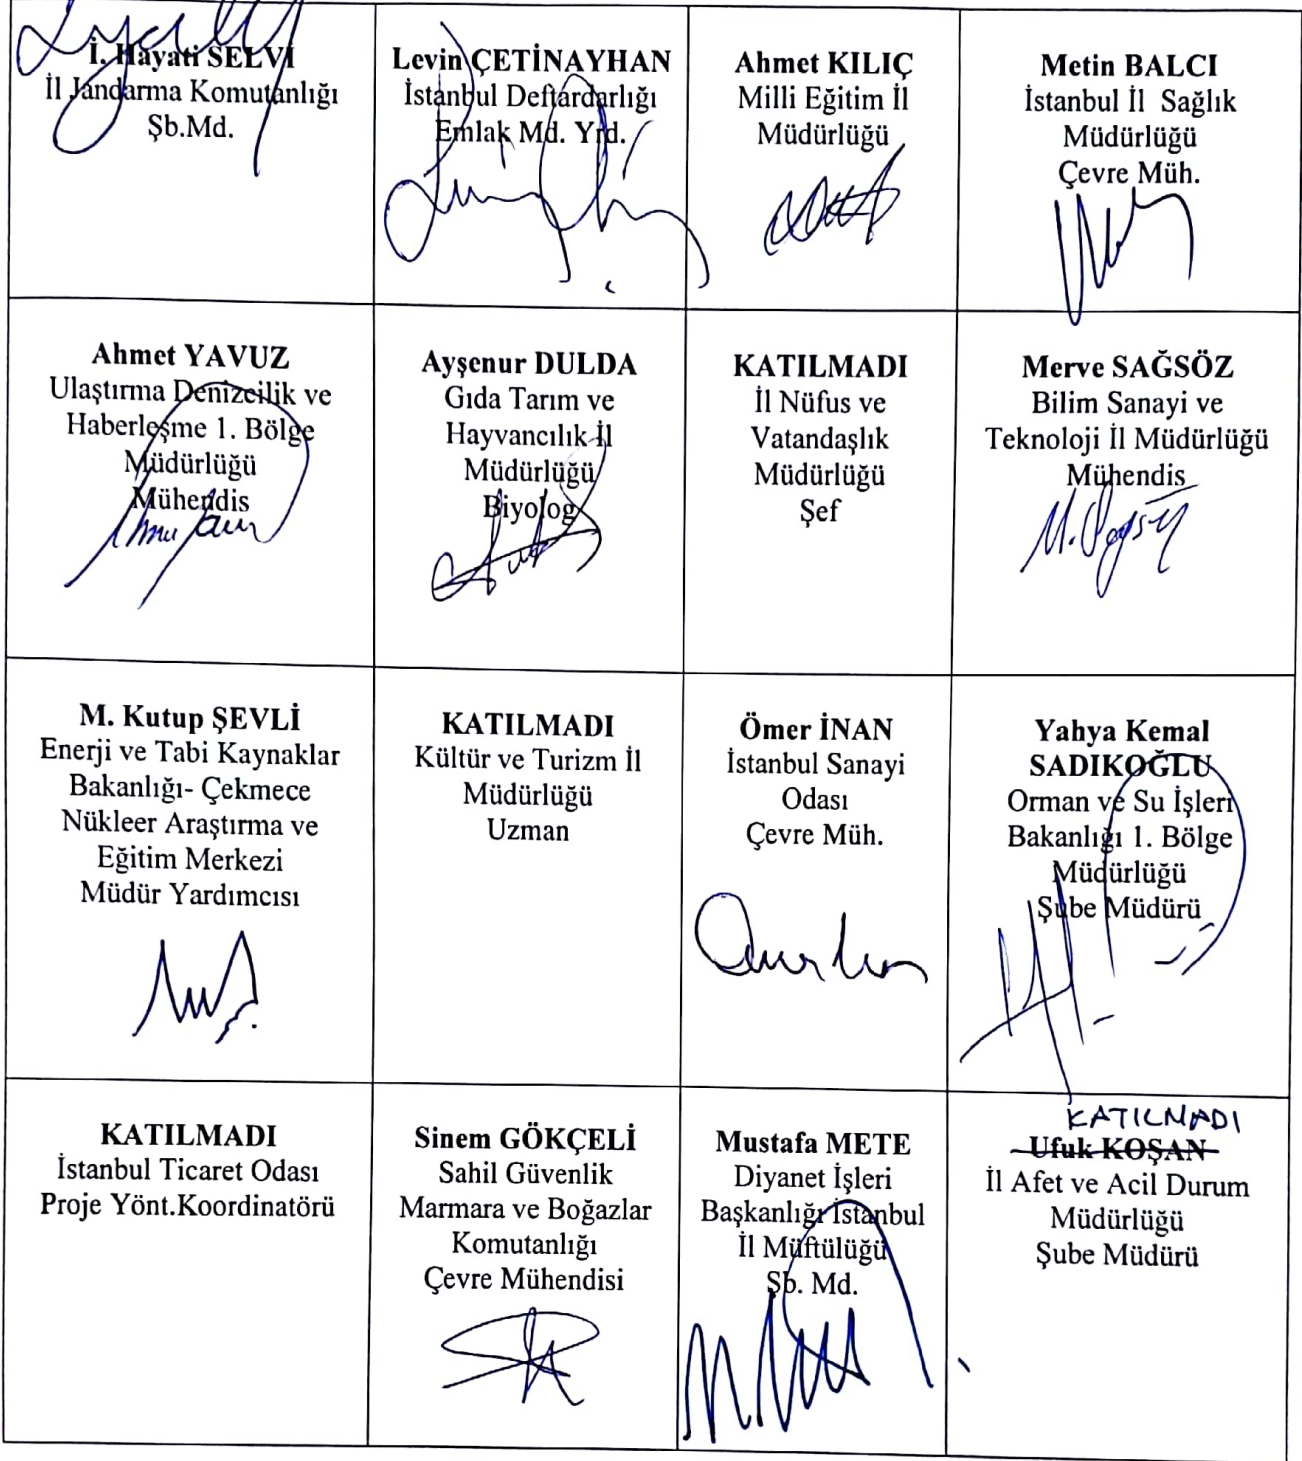 İ. Hayati SELVİ
İl Jandarma Komutanlığı
Şb.Md.
Levin ÇETİNAYHAN
İstanbul Deftardarlığı
Emlak Md. Yrd.
Ahmet KILIÇ
Milli Eğitim İl
Müdürlüğü
Metin BALCI
İstanbul İl Sağlık
Müdürlüğü
Çevre Müh.
Ahmet YAVUZ
Ulaştırma Denizcilik ve
Haberleşme 1. Bölge
Müdürlüğü
Mühendis
Ayşenur DULDA
Gıda Tarım ve
Hayvancılık İl
Müdürlüğü
Biyolog
KATILMADI
İl Nüfus ve
Vatandaşlık
Müdürlüğü
Şef
Merve SAĞSÖZ
Bilim Sanayi ve
Teknoloji İl Müdürlüğü
Mühendis
M. Kutup ŞEVLİ
Enerji ve Tabi Kaynaklar
Bakanlığı- Çekmece
Nükleer Araştırma ve
Eğitim Merkezi
Müdür Yardımcısı
KATILMADI
Kültür ve Turizm İl
Müdürlüğü
Uzman
Ömer İNAN
İstanbul Sanayi
Odası
Çevre Müh.
Yahya Kemal
SADIKOĞLU
Orman ve Su İşleri
Bakanlığı 1. Bölge
Müdürlüğü
Şube Müdürü
KATILMADI
İstanbul Ticaret Odası
Proje Yönt.Koordinatörü
Sinem GÖKÇELİ
Sahil Güvenlik
Marmara ve Boğazlar
Komutanlığı
Çevre Mühendisi
Mustafa METE
Diyanet İşleri
Başkanlığı İstanbul
İl Müftülüğü
Şb. Md.
KATILMADI
Ufuk KOŞAN
İl Afet ve Acil Durum
Müdürlüğü
Şube Müdürü